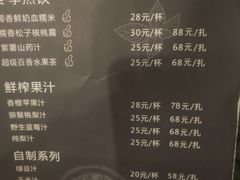 椰香鲜奶血糯米 28元/杯
糯香松子核桃露 30元/杯 88元/扎
紫薯山药汁 25元/杯 68元/扎
超级百香水果茶 25元/杯 68元/扎
鲜榨果汁
香橙苹果汁 28元/杯 78元/扎
猕猴桃梨汁 25元/杯 68元/扎
野生蓝莓汁 25元/杯 68元/扎
纯梨汁 25元/杯 68元/扎
自制系列
绿豆汁 20元/杯 58元/扎